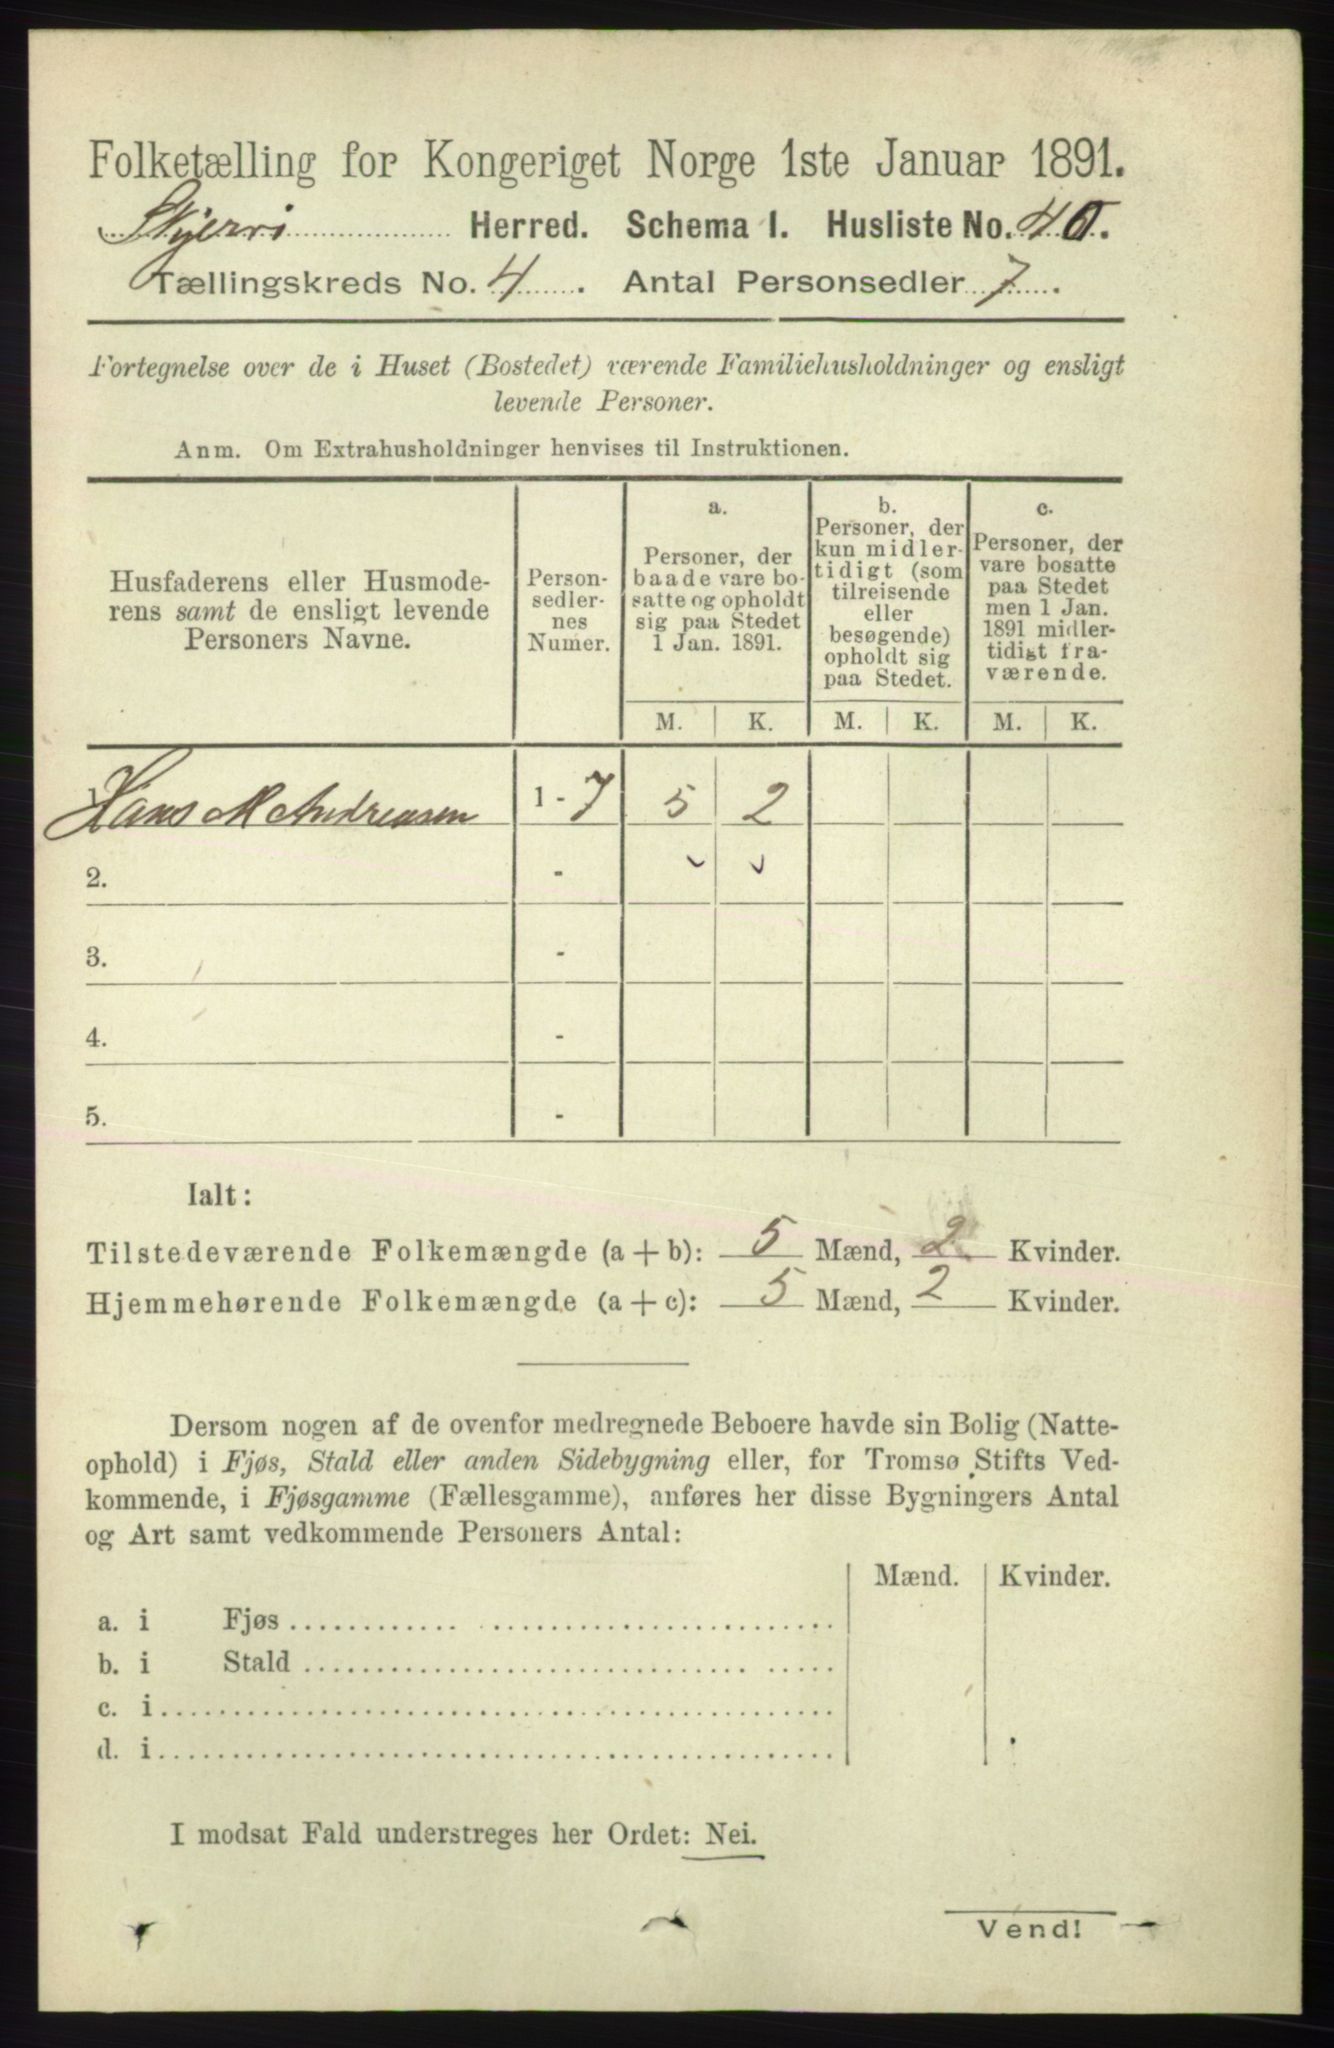 Folketælling for Kongeriget Norge 1ste Januar 1891.
Skjervø Herred. Schema I. Husliste No. 40.
Tællingskreds No. 4. Antal Personsedler 7.
Fortegnelse over de i Huset (Bostedet) værende Familiehusholdninger og ensligt
levende Personer.
Anm. Om Extrahusholdninger henvises til Instruktionen.
Husfaderens eller Husmode-
rens samt de ensligt levende
Personers Navne.
Person-
sedler-
nes
Numer.
a.
Personer, der
baade vare bo-
satte og opholdt
sig paa Stedet
1 Jan. 1891.
b.
Personer, der
kun midler-
tidigt (som
tilreisende
eller
besøgende)
opholdt sig
paa Stedet.
c.
Personer, der
vare bosatte
paa Stedet
men 1 Jan.
1891 midler-
tidigt fra-
værende.
M. K. M. K. M. K.
1. Hans M Andreasen 1 - 7 5 2
2. -
3. -
4. -
5. -
Ialt:
Tilstedeværende Folkemængde (a + b): 5 Mænd, 2 Kvinder.
Hjemmehørende Folkemængde (a + c): 5 Mænd, 2 Kvinder.
Dersom nogen af de ovenfor medregnede Beboere havde sin Bolig (Natte-
ophold) i Fjøs, Stald eller anden Sidebygning eller, for Tromsø Stifts Ved-
kommende, i Fjøsgamme (Fællesgamme), anføres her disse Bygningers Antal
og Art samt vedkommende Personers Antal:
Mænd. Kvinder.
a. i Fjøs
b. i Stald
c. i
d. i
I modsat Fald understreges her Ordet: Nei.
Vend!